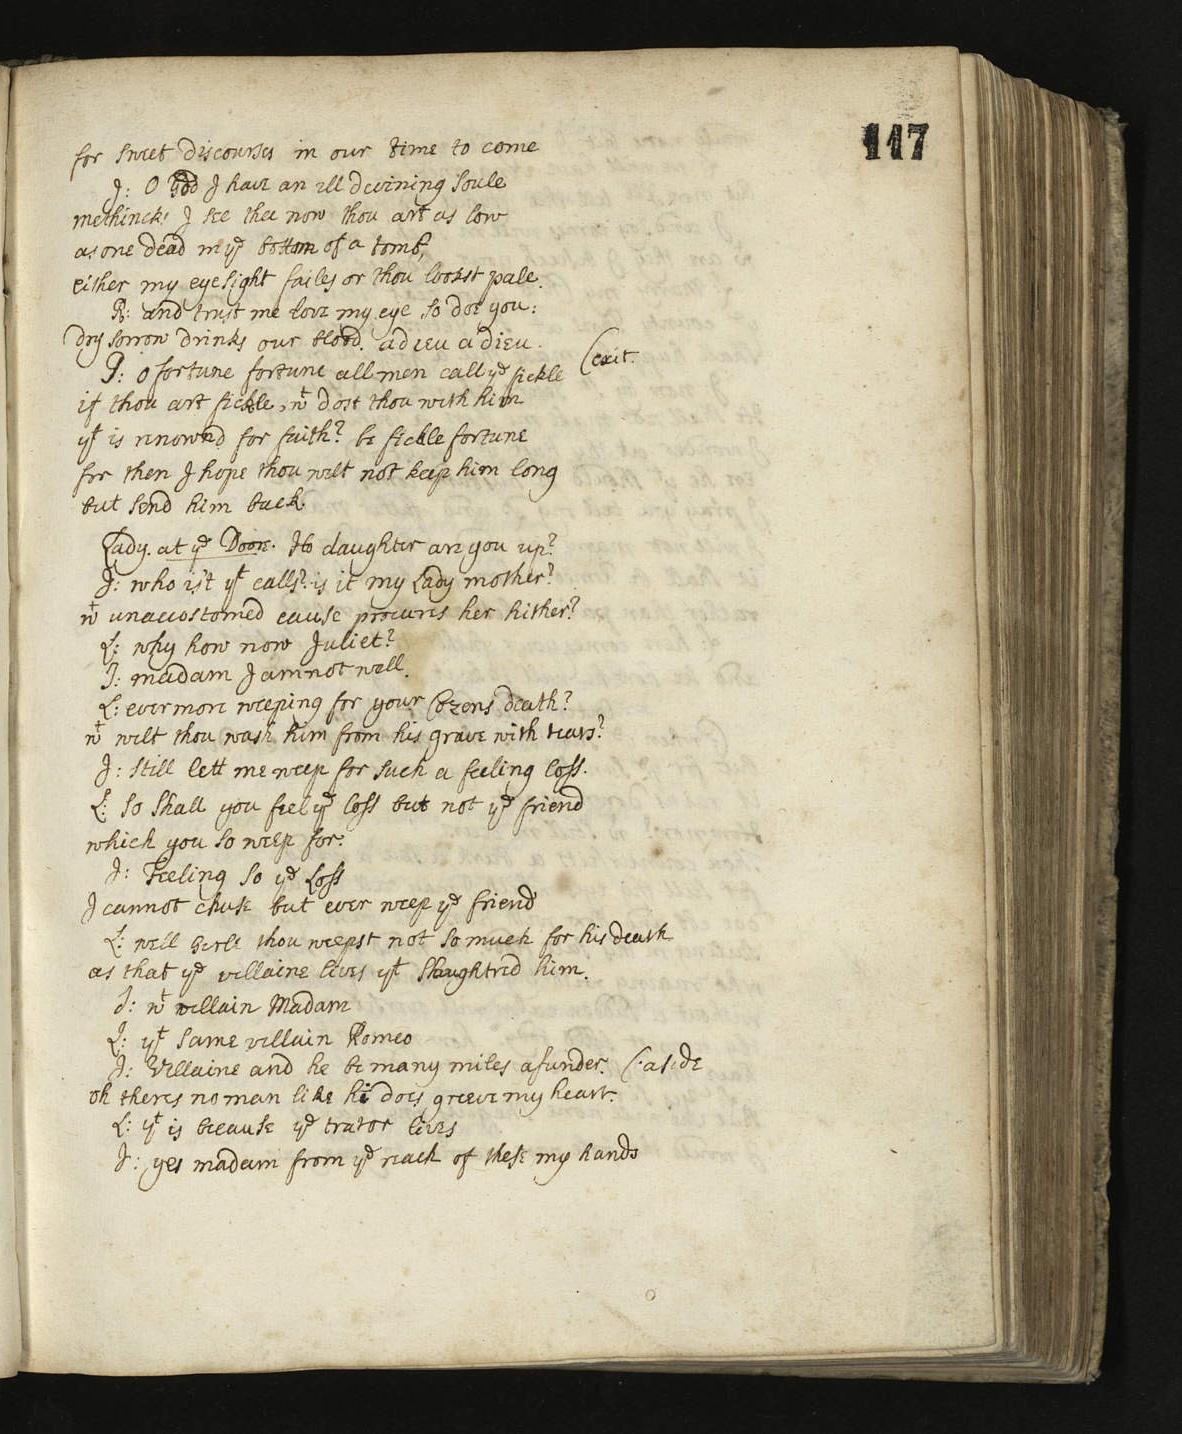 117
for sweet discourses in our time to come
J: O God J have an ill devining soule
methincks J see thee now thou art as low
as one dead in yᵉ bottom of a tomb,
either my eyesight failes or thou lookst pale.
R: and trust me love my eye so doe you:
Dry sorrow drinks our blood. adieu adieu. (exit.
J: o fortune fortune all men call yᵉ fickle
if thou art fickle, wᵗ dost thou with him
yᵗ is renownd for faith? be fickle fortune
for then J hope thou wilt not keep him long
but send him back.
Lady. at yᵉ Door. Ho daughter are you up?
J: who is't yᵗ calls? is it my Lady mother?
wᵗ unaccostomed cause procures her hither?
L: why how now Juliet?
J: madam J am not well.
L: evermore weeping for your Cozens death?
wᵗ wilt thou wash him from his grave with tears?
J: still lett me weep for such a feeling loss.
L: so shall you feel yᵉ loss but not yᵉ friend
which you so weep for:
J: Feeling so yᵉ Loss
J cannot chuse but ever weep yᵉ friend
L: well girle thou weepst not so much for his death
as that yᵉ villaine lives yᵗ slaughtred him.
J: wᵗ villain Madam
L: yᵗ same villain Romeo
J: Villaine and he be many miles asunder. (:aside
oh theres no man like he does greeve my heart.
L: yᵗ is because yᵉ trator lives
J: yes madam from yᵉ reach of these my hands